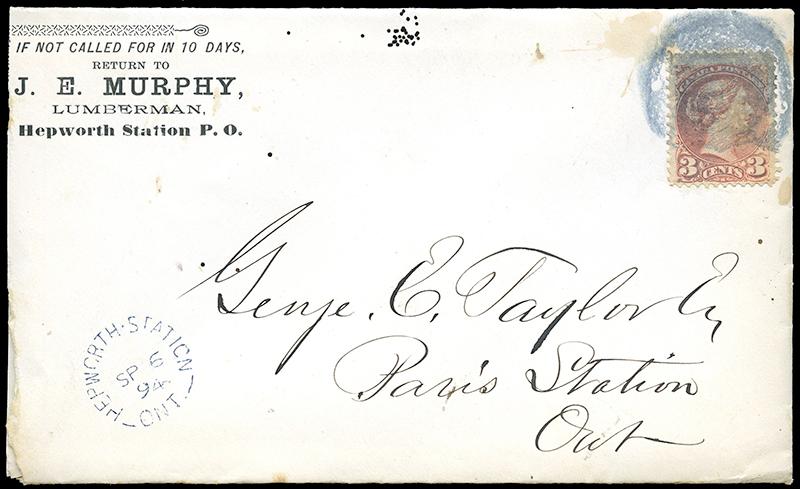 IF NOT CALLED FOR IN 10 DAYS,
RETURN TO
J. E. MURPHY,
LUMBERMAN,
Hepworth Station P. O.
CANADA POSTAGE
3 CENTS 3
George. E. Taylor Esq
Paris Station
Ont
HEPWORTH · STATION
6
SP
94
ONT.